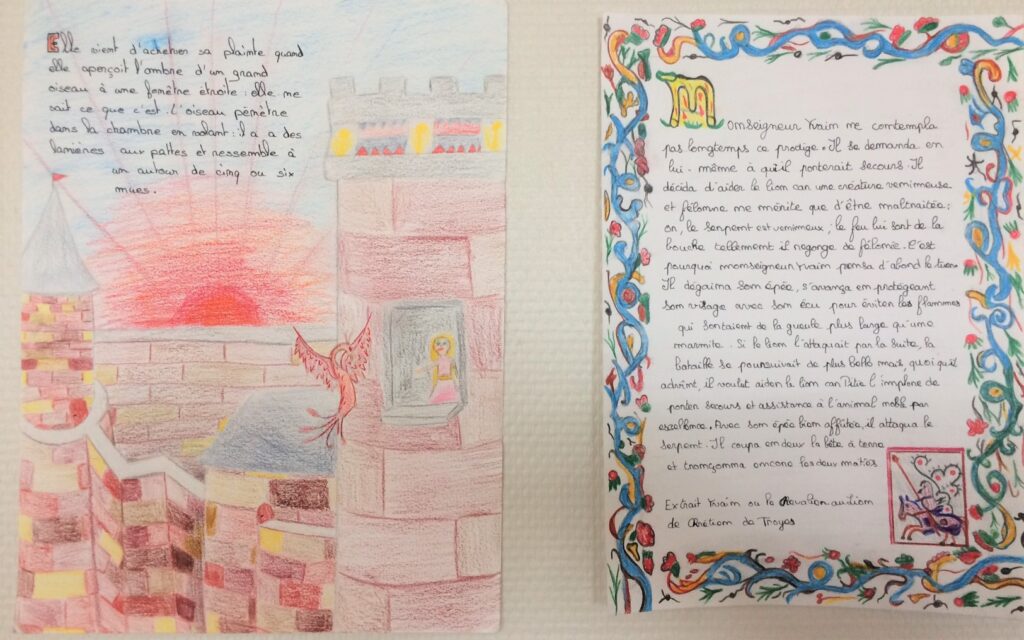 Elle vient d'achever sa plainte quand
elle aperçoit l'ombre d'un grand
oiseau à une fenêtre étroite : elle ne
sait ce que c'est. L'oiseau pénètre
dans la chambre en volant : il a des
lanières aux pattes et ressemble à
un autour de cinq ou six
mues.
Monseigneur Yvain ne contempla
pas longtemps ce prodige. Il se demanda en
lui-même à qu'il porterait secours. Il
décida d'aider le lion car une créature venimeuse
et félonne ne mérite que d'être maltraitée ;
or, le serpent est venimeux, le feu lui sort de la
bouche tellement il regorge de félonie. C'est
pourquoi monseigneur Yvain pensa d'abord le
Il dégaina son épée, s'avança en protégeant
son visage avec son écu pour éviter les flammes
qui sortaient de la gueule plus large qu'une
marmite. Si le lion l'attaquait par la suite, la
bataille se poursuivrait de plus belle mais, quoi qu'il
advint, il voulut aider le lion car Pitié l'implore de
porter secours et assistance à l'animal noble par
excellence. Avec son épée bien affûtée, il attaqua le
serpent. Il coupa en deux la bête à terre
et tronçonna encore les deux moitiés.
Extrait Yvain ou le Chevalier au Lion
de Chrétien de Troyes